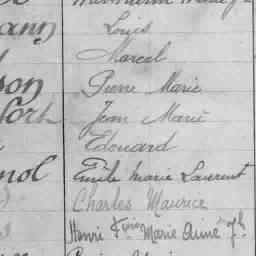 ann Louis
Marcel
son Pierre Marie
Jean Marie
Edouard
nol Emile Marie Laurent
Charles Maurice
Henri Marie Aimé